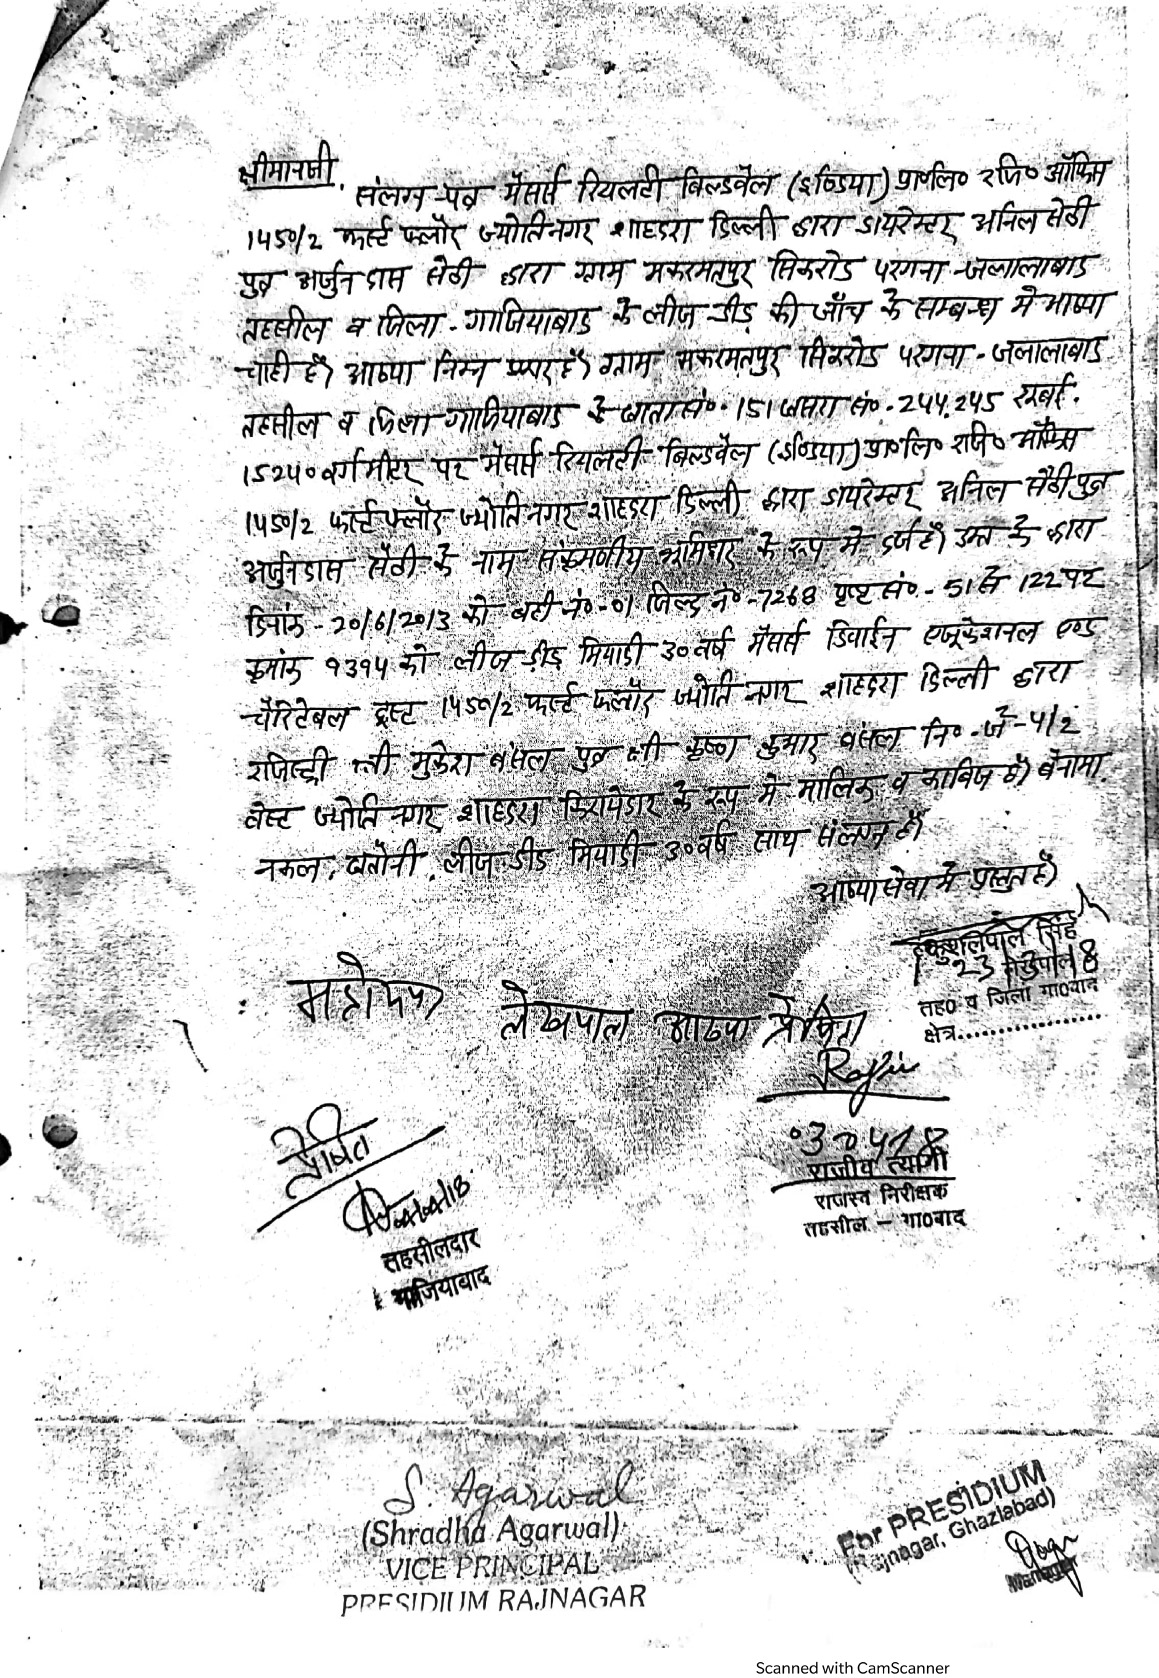 श्रीमानजी,
संलग्न पत्र मैसर्स रियलटी बिल्डवैल (इण्डिया) प्रा०लि० रजि० ऑफिस
1450/2 फर्स्ट फ्लोर ज्योतिनगर शाहदरा दिल्ली द्वारा डायरेक्टर अनिल सेठी
पुत्र अर्जुनदास सेठी द्वारा ग्राम मकरमतपुर सिकरोड परगना-जलालाबाद
तहसील व जिला-गाजियाबाद के लीज डीड की जाँच के सम्बन्ध में आख्या
चाही है। आख्या निम्न प्रकार है। ग्राम मकरमतपुर सिकरोड परगना-जलालाबाद
तहसील व जिला गाजियाबाद के खाता सं०-151 खसरा सं०-244, 245 रकबई
15240 वर्गमीटर पर मैसर्स रियलटी बिल्डवैल (इण्डिया) प्रा०लि० रजि० ऑफिस
1450/2 फर्स्ट फ्लोर ज्योतिनगर शाहदरा दिल्ली द्वारा डायरेक्टर अनिल सेठी पुत्र
अर्जुनदास सेठी के नाम संक्रमणीय भूमिधर के रूप में दर्ज है। उक्त के द्वारा
दिनांक-20/6/2013 को बही नं०-01 जिल्द नं०-7268 पृष्ठ सं०-51 से 122 पर
क्रमांक 9394 को लीज डीड मियादी 30 वर्ष मैसर्स डिवाईन एजूकेशनल एण्ड
चैरिटेबल ट्रस्ट 1450/2 फर्स्ट फ्लोर ज्योति नगर शाहदरा दिल्ली द्वारा
रजिस्ट्री श्री मुकेश बंसल पुत्र श्री कृष्ण कुमार बंसल नि०-जे-4/2
वेस्ट ज्योति नगर शाहदरा किरायेदार के रूप में मालिक व काबिज है। बैनामा
नकल, खतौनी, लीज डीड मियादी 30 वर्ष साथ संलग्न है।
आख्या सेवा में प्रस्तुत है।
कुशलपाल सिंह
23/3/18
लेखपाल
तह० व जिला गा०वाद
क्षेत्र..................
महोदय,
लेखपाल आख्या प्रेषित
Rajiv
03 04 18
राजीव त्यागी
राजस्व निरीक्षक
तहसील – गा०वाद
प्रेषित
तहसीलदार
गाजियाबाद
S. Agarwal
(Shradha Agarwal)
VICE PRINCIPAL
PRESIDIUM RAJNAGAR
For PRESIDIUM
(Rajnagar, Ghaziabad)
Manager
Scanned with CamScanner